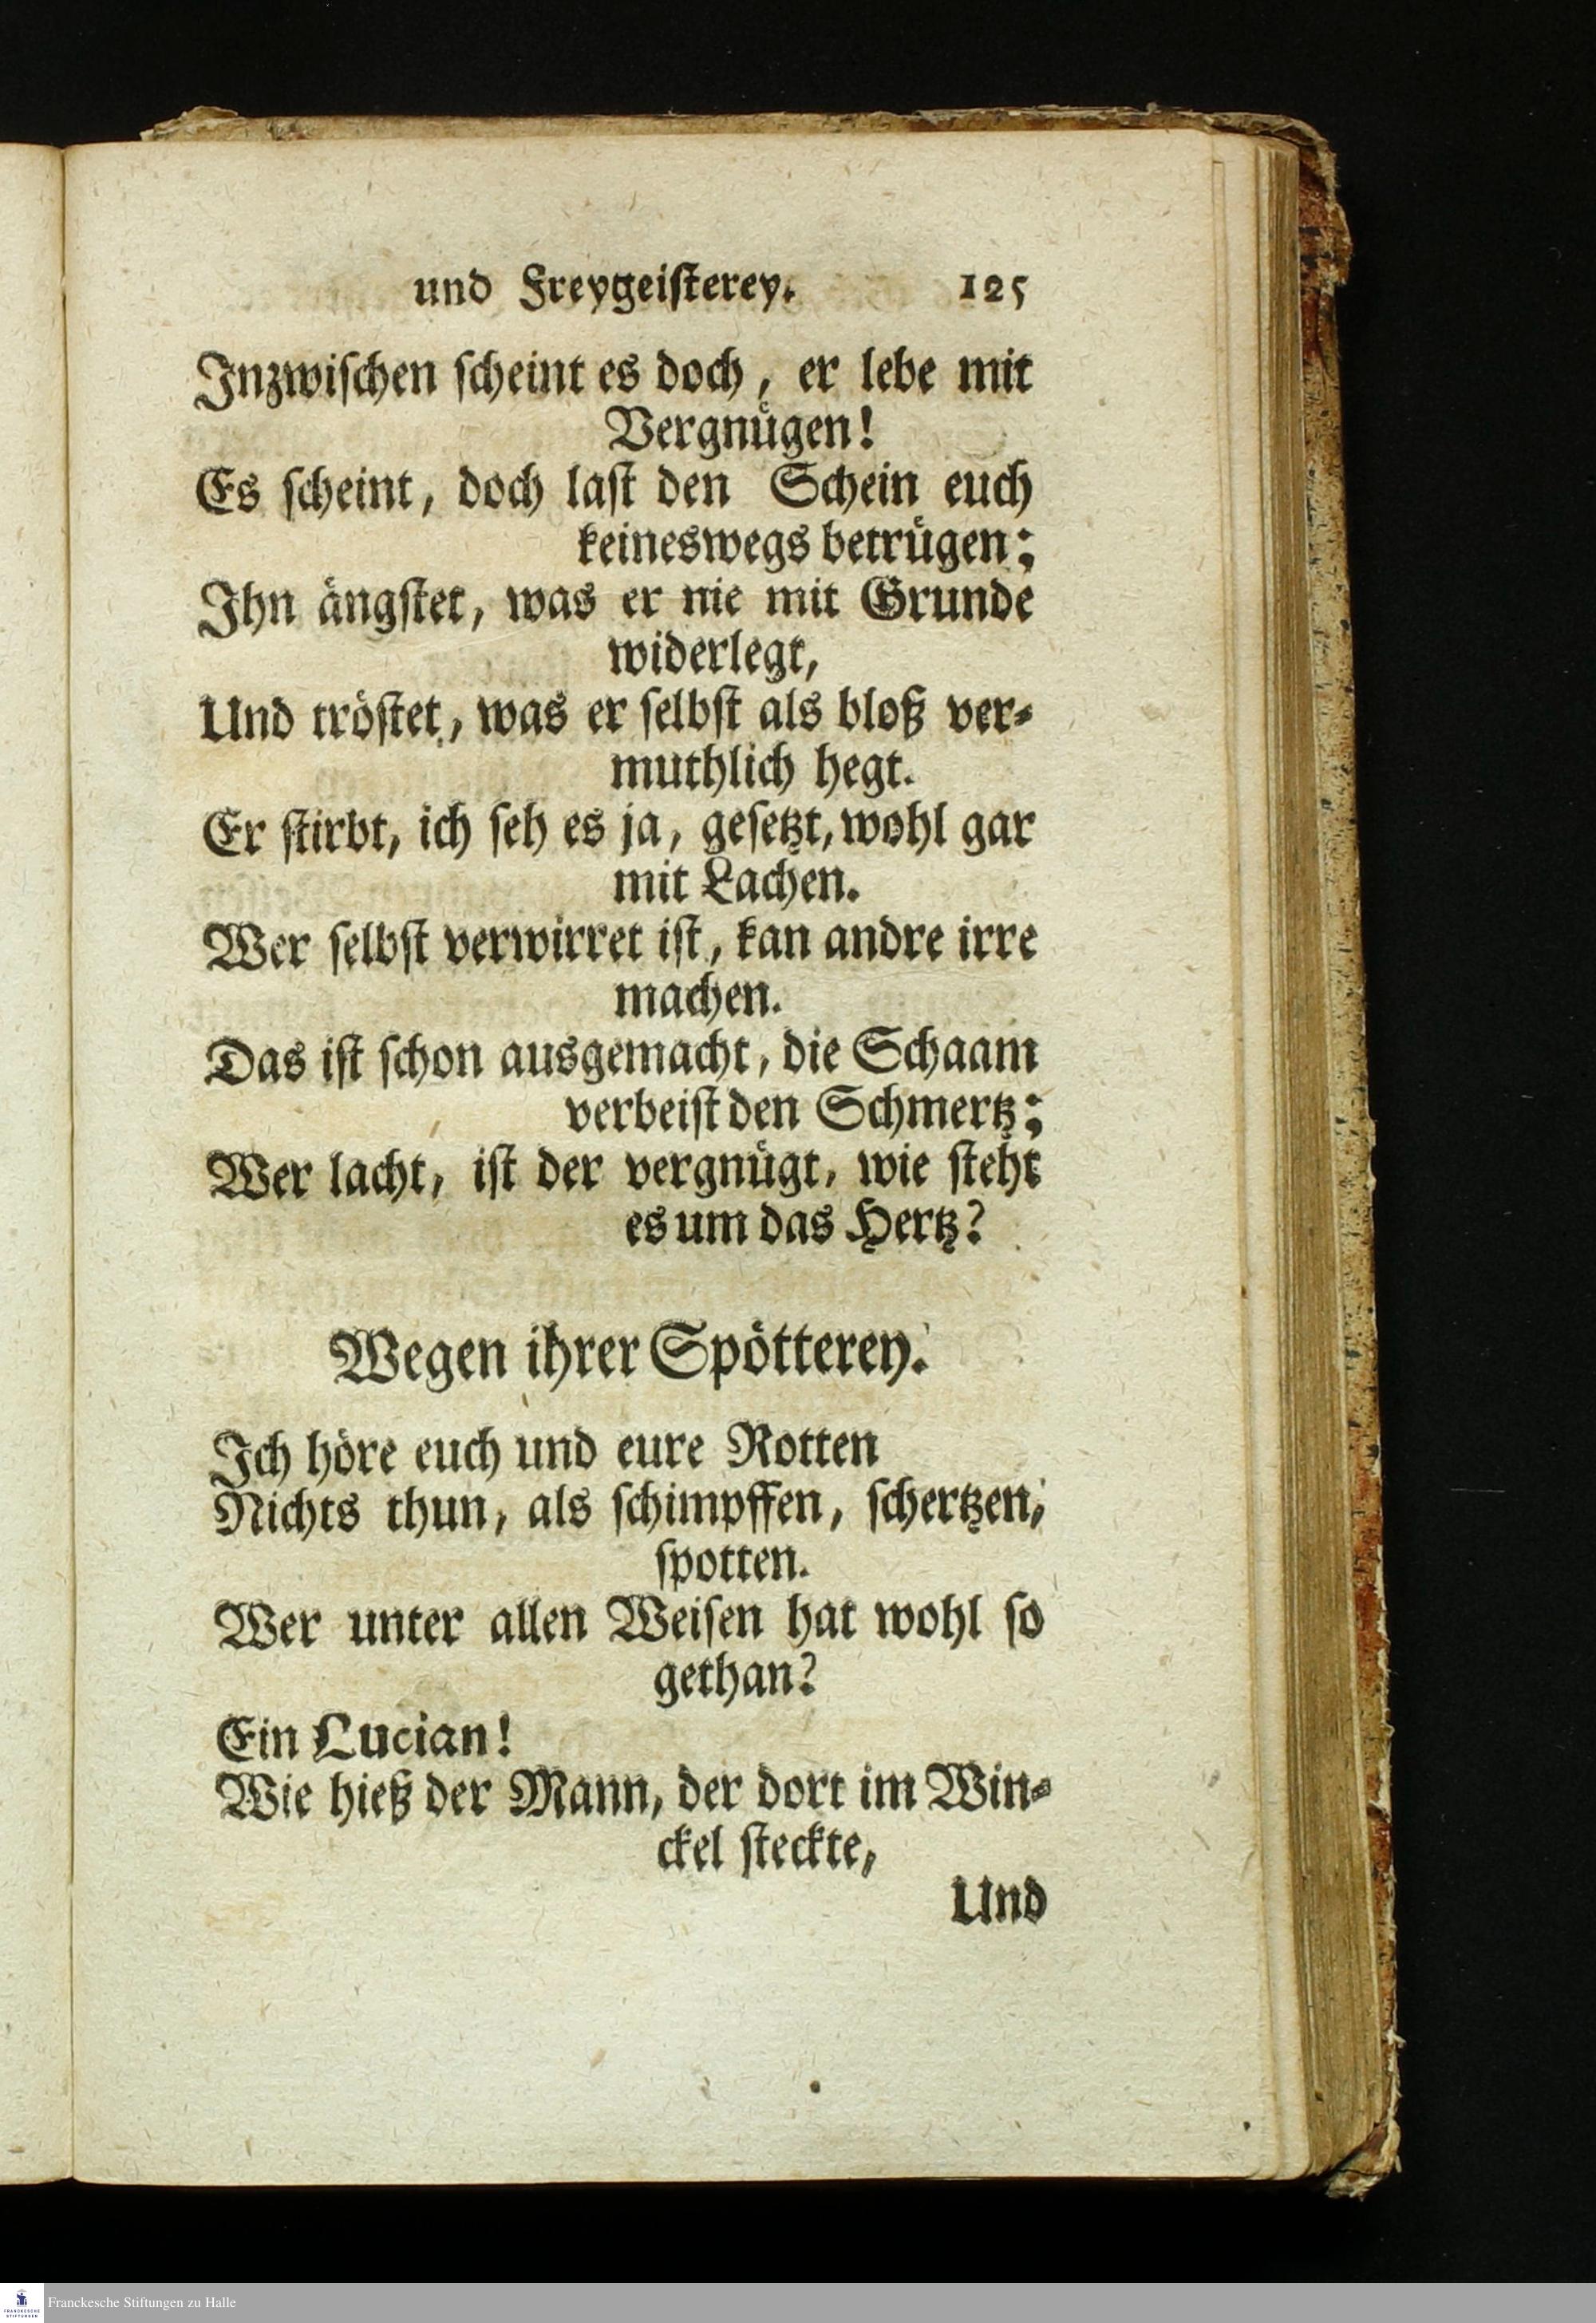 und Freygeiſterey. 125
Inzwiſchen ſcheint es doch, er lebe mit
Vergnuͤgen!
Es ſcheint, doch laſt den Schein euch
keineswegs betruͤgen;
Ihn aͤngſtet, was er nie mit Grunde
widerlegt,
Und troͤſtet, was er ſelbſt als bloß ver⸗
muthlich hegt.
Er ſtirbt, ich ſeh es ja, geſetzt, wohl gar
mit Lachen.
Wer ſelbſt verwirret iſt, kan andre irre
machen.
Das iſt ſchon ausgemacht, die Schaam
verbeiſt den Schmertz;
Wer lacht, iſt der vergnuͤgt, wie ſteht
es um das Hertz?
Wegen ihrer Spoͤtterey.
Ich hoͤre euch und eure Rotten
Nichts thun, als ſchimpffen, ſchertzen,
ſpotten.
Wer unter allen Weiſen hat wohl ſo
gethan?
Ein Lucian!
Wie hieß der Mann, der dort im Win⸗
ckel ſteckte,
Und
FRANCKESCHE
STIFTUNGEN
Franckesche Stiftungen zu Halle